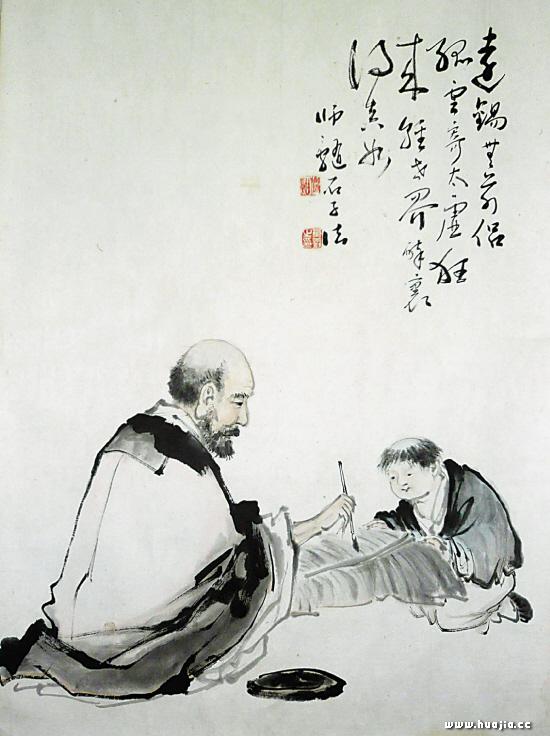 遠錫無前侶
孤雲寄太虛狂
來輕世界醉裏
得真如
师石子法
www.huajia.cc